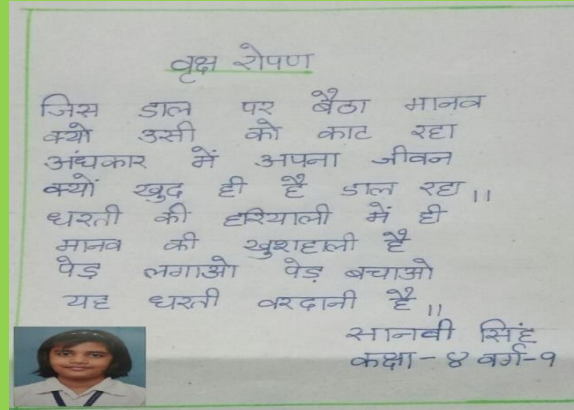 वृक्ष रोपण
जिस डाल पर बैठा मानव
क्यो उसी को काट रहा
अंधकार में अपना जीवन
क्यों खुद ही है डाल रहा ||
धरती की हरियाली में ही
मानव की खुशहाली है
पेड़ लगाओ पेड़ बचाओ
यह धरती वरदानी है ||
सानवी सिंह
कक्षा - ४ वर्ग - १